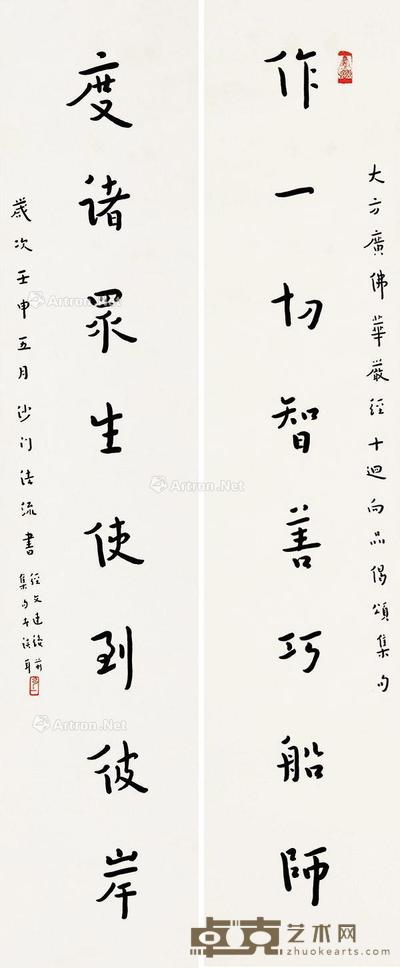 大方廣佛華嚴經十迴向品偈頌集句
作一切智善巧船師
度諸眾生使到彼岸
歲次壬申五月沙门
書
Artron.Net
Artron.Net
Artron.Net
Artron.Net
卓克艺术网
www.zhuokearts.com